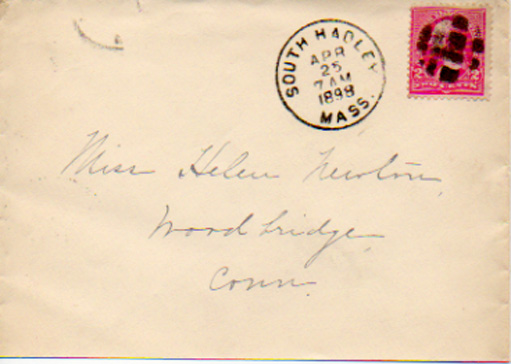 SOUTH HADLEY
APR
25
7 AM
1898
MASS.
2 2
Miss Helen Newton,
Woodbridge,
Conn.